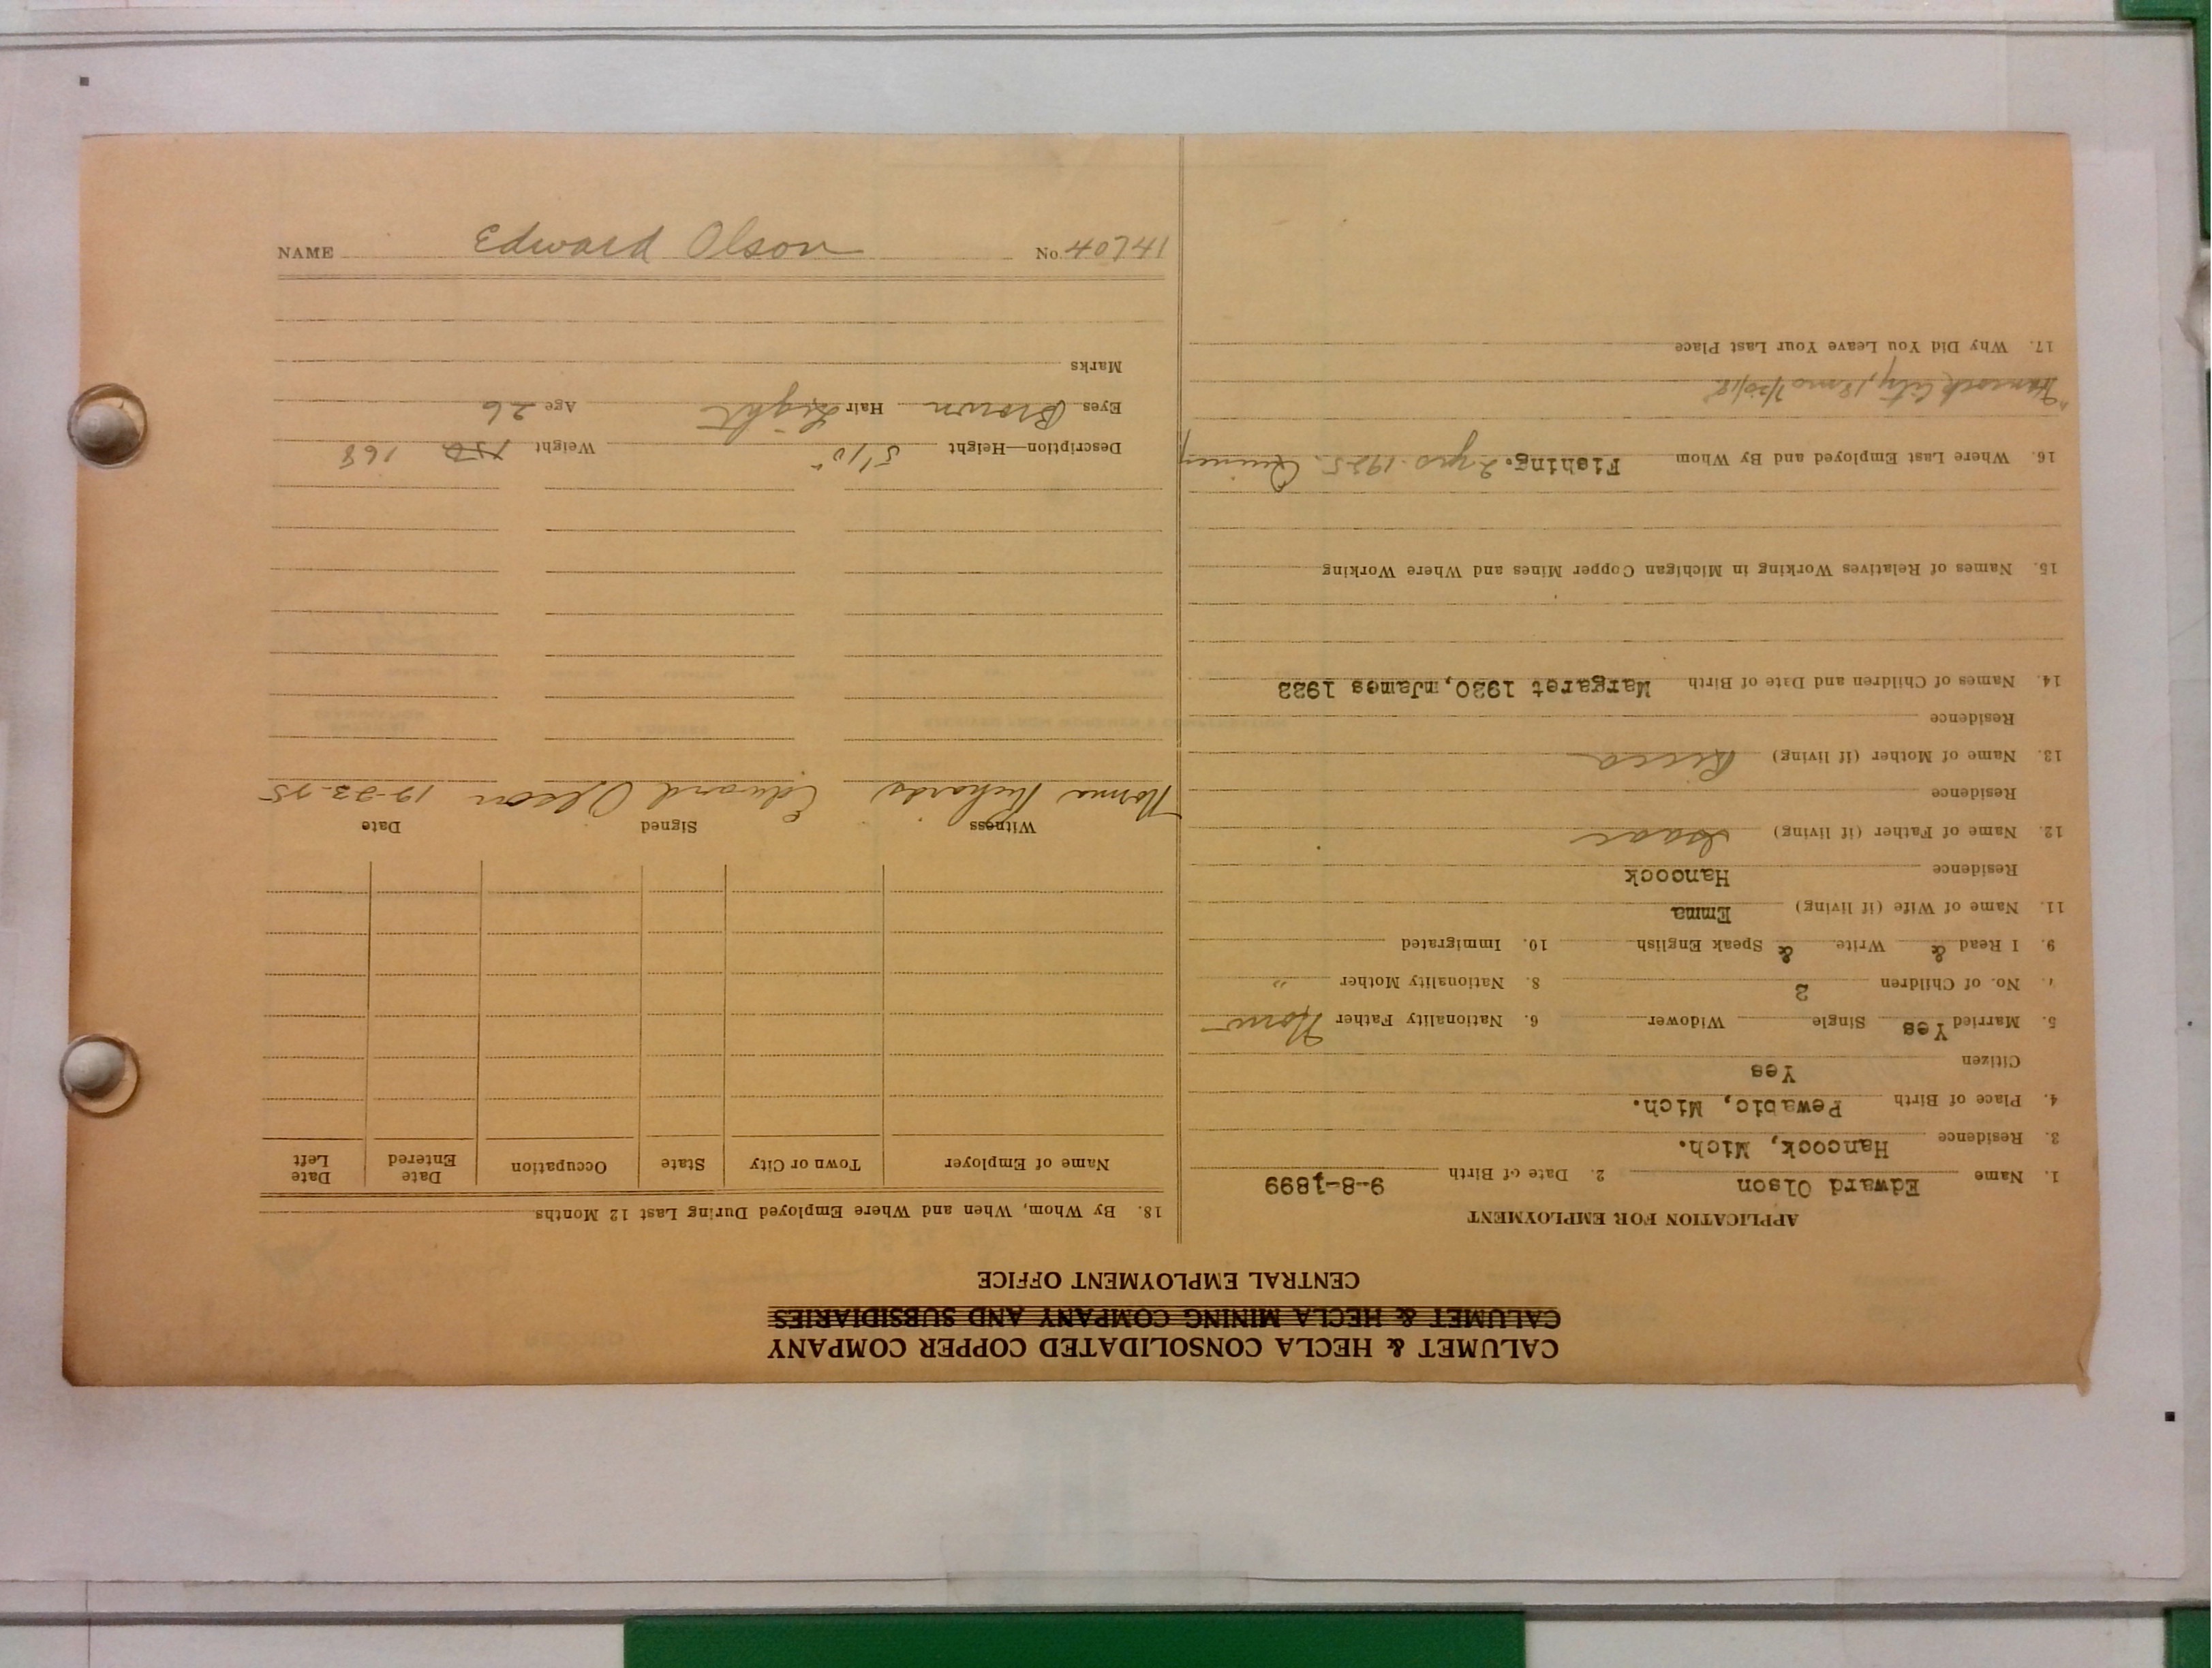 CALUMET & HECLA CONSOLIDATED COPPER COMPANY
CALUMET & HECLA MINING COMPANY AND SUBSIDIARIES
CENTRAL EMPLOYMENT OFFICE
APPLICATION FOR EMPLOYMENT
1. Name Edward Olson 2. Date of Birth 9-8-1899
3. Residence Hancock, Mich.
4. Place of Birth Pewabic, Mich.
Citizen Yes
5. Married Yes Single Widower 6. Nationality Father Norw
7. No. of Children 2 8. Nationality Mother "
9. I Read & Write & Speak English 10. Immigrated
11. Name of Wife (if living) Emma
Residence Hancock
12. Name of Father (if living) Isaac
Residence
13. Name of Mother (if living)
Residence
14. Names of Children and Date of Birth Margaret 1930, James 1933
15. Names of Relatives Working in Michigan Copper Mines and Where Working
16. Where Last Employed and By Whom Fishing. 2 yrs. 1925. Quincy
Hancock City, 18 mo
17. Why Did You Leave Your Last Place
18. By Whom, When and Where Employed During Last 12 Months
Name of Employer Town or City State Occupation Date Entered Date Left
Witness Signed Date
Norma Richards Edward Olson
Description—Height 5'10" Weight 168
Eyes Brown Hair Light Age 26
Marks
NAME Edward Olson No. 40741